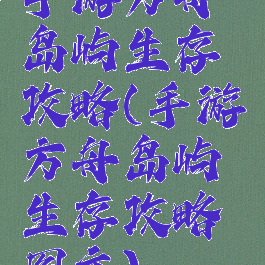 手游方舟
岛屿生存
攻略(手游
方舟岛屿
生存攻略